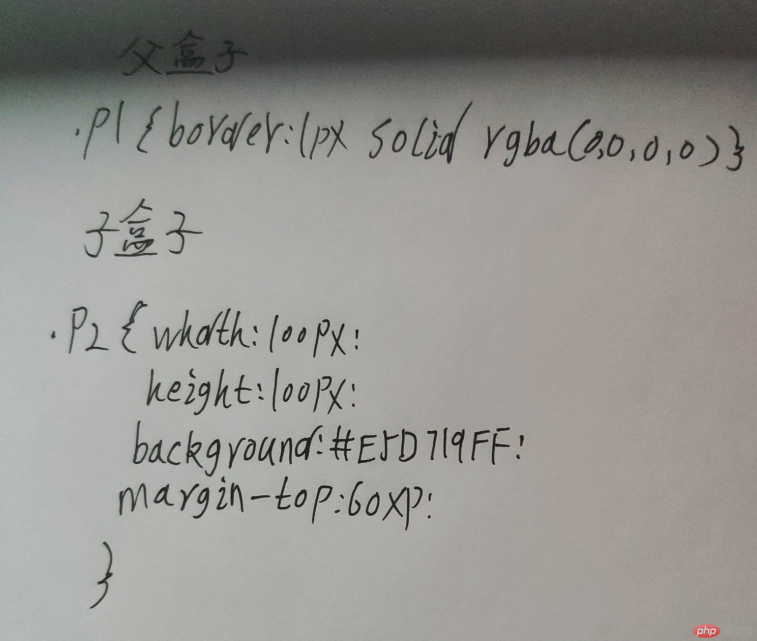 父盒子
.p1{border:1px solid rgba(0,0,0,0)}
子盒子
.P2{whdth:100px:
height:100px:
background:#E5D719FF:
margin-top:60xp:
}
php